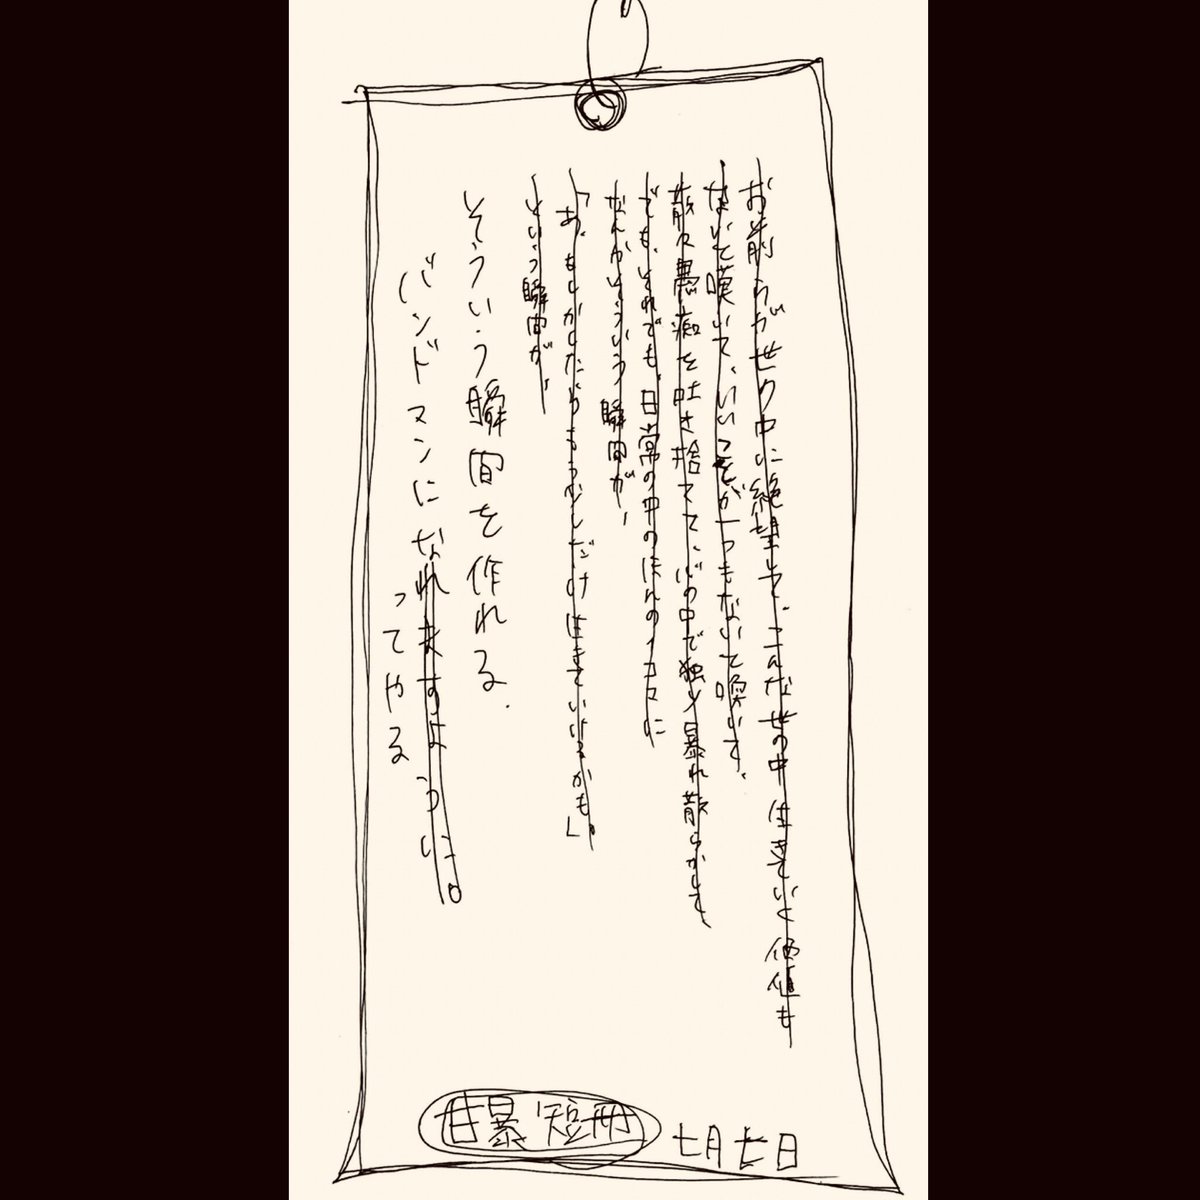 お前らが世の中に絶望して、こんな世の中生きていく価値も
ないて嘆いて、いいことが一つもないて嘆いて、
散々愚痴を吐き捨てて、心の中で独り暴れ散らかして、
でも、それでも、日常の中のほんの1コマに
なんかそういう瞬間が、
「あ、もしかしたらもう少しだけ生きていけるかも。」
という瞬間が、
そういう瞬間を作れる.
バンドマンになれますように。
ってやる
甘暴短冊
七月七日